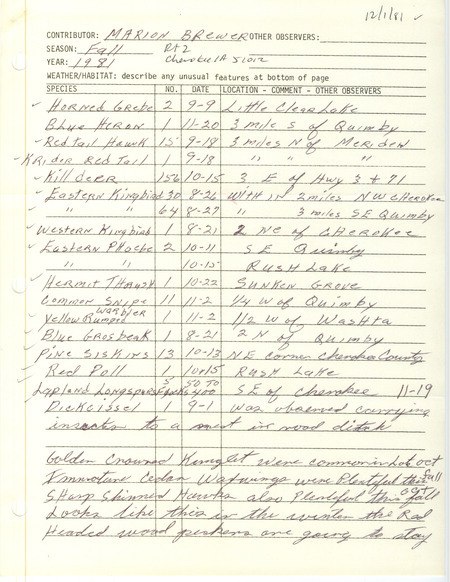 12/1/81 ✓
CONTRIBUTOR: MARION BREWER OTHER OBSERVERS:
SEASON: Fall Rt 2
YEAR: 1981 Cherokee IA 51012
WEATHER/HABITAT: describe any unusual features at bottom of page
SPECIES NO. DATE LOCATION - COMMENT - OTHER OBSERVERS
✓ Horned Grebe 2 9-9 Little Clear Lake
Blue Heron 1 11-20 3 miles S of Quimby
✓ Red Tail Hawk 15 9-18 3 miles N of Meriden
✓ Krider Red Tail 1 9-18 " " "
✓ Killdeer 156 10-15 3 E of Hwy 3 + 71
✓ Eastern Kingbird 30 8-26 within 2 miles NW Cherokee
" " 64 8-27 " 3 miles SE Quimby
✓ Western Kingbird 1 8-21 2 NE of CHEROKEE
✓ Eastern Phoebe 2 10-11 SE Quimby
" " 1 10-15 Rush Lake
✓ Hermit Thrush 1 10-22 Sunken Grove
Common Snipe 11 11-2 1/4 W of Quimby
✓ Yellow Rumped Warbler 1 11-2 1/2 W of Washta
✓ Blue Grosbeak 1 8-21 2 N of Quimby
✓ Pine Siskins 13 10-13 NE corner Cherokee County
✓ Red Poll 1 10-15 Rush Lake
✓ Lapland Longspurs 5 Flocks 50 TO 400 SE of Cherokee 11-19
Dickcissel 9-1 was observed carrying
insects to a nest in road ditch
Golden Crowned Kinglet were common in Late Oct
Immature Cedar Waxwings were Plentiful this fall
Sharp Shinned Hawks also Plentiful this fall
Looks like this in the winter the Red
Headed wood peckers are going to stay